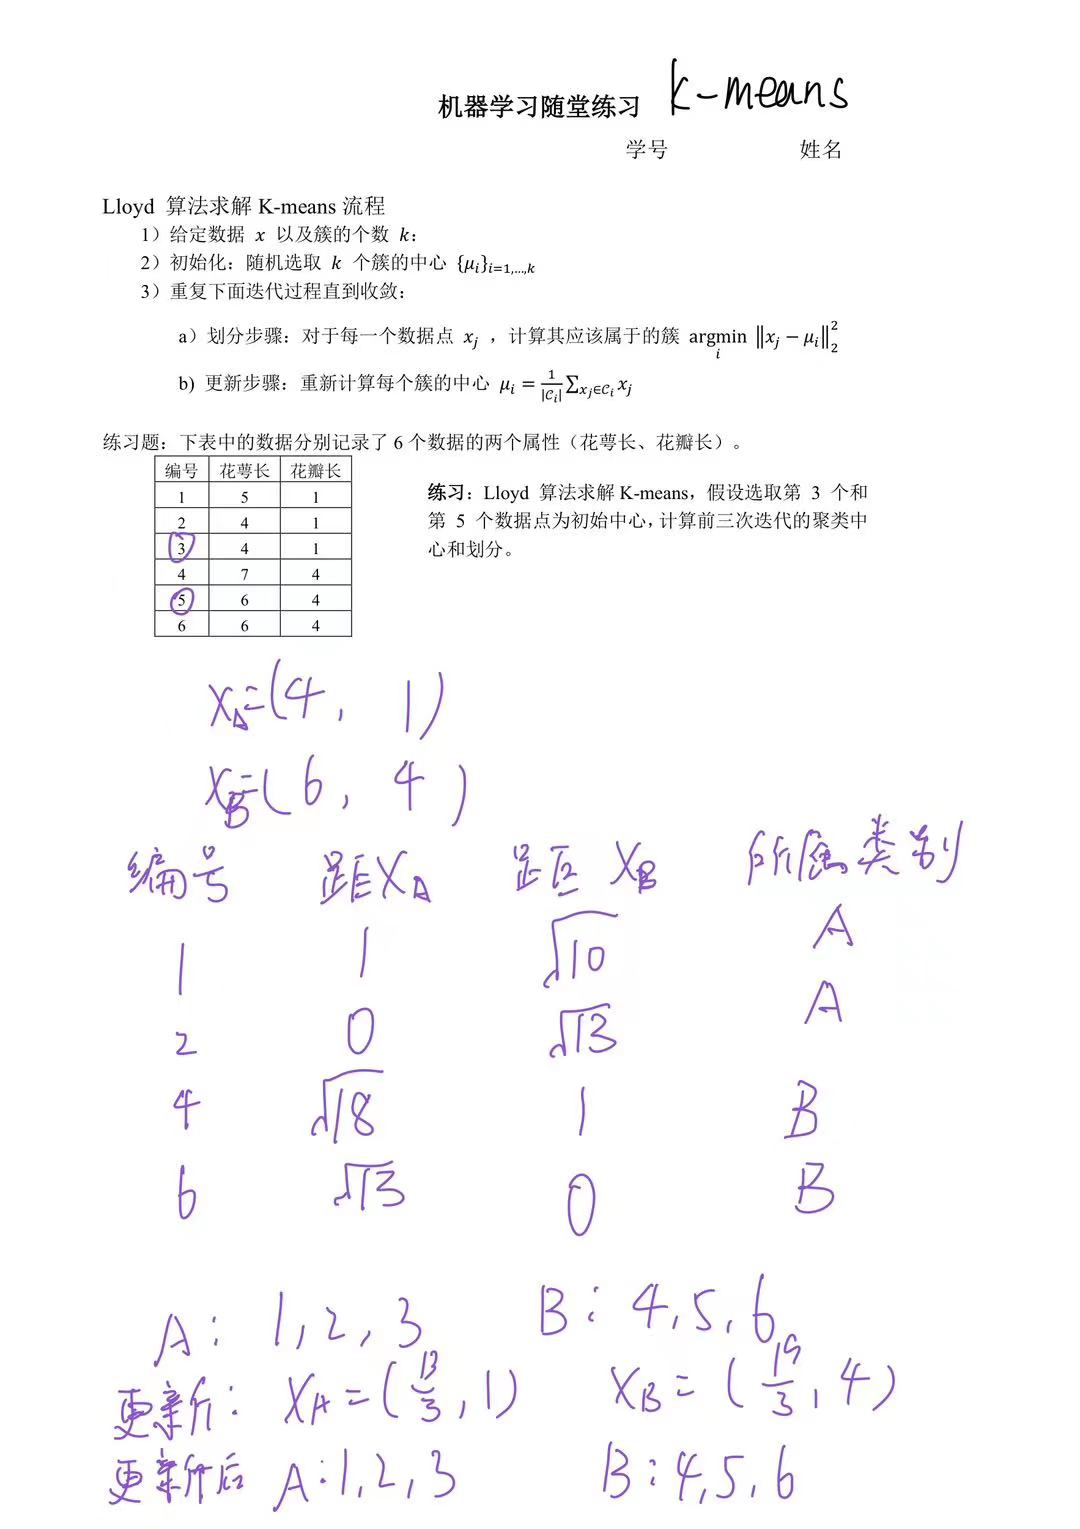 机器学习随堂练习 k-means
学号 姓名
Lloyd 算法求解 K-means 流程
1）给定数据 x 以及簇的个数 k：
2）初始化：随机选取 k 个簇的中心 {μᵢ}ᵢ₌₁,…,ₖ
3）重复下面迭代过程直到收敛：
a）划分步骤：对于每一个数据点 xⱼ ，计算其应该属于的簇 argmin_i ‖xⱼ − μᵢ‖₂²
b) 更新步骤：重新计算每个簇的中心 μᵢ = 1/|𝒞ᵢ| ∑_{xⱼ∈𝒞ᵢ} xⱼ
练习题：下表中的数据分别记录了 6 个数据的两个属性（花萼长、花瓣长）。
编号 花萼长 花瓣长
1 5 1
2 4 1
3 4 1
4 7 4
5 6 4
6 6 4
练习：Lloyd 算法求解 K-means，假设选取第 3 个和
第 5 个数据点为初始中心，计算前三次迭代的聚类中
心和划分。
X_A=(4, 1)
X_B=(6, 4)
编号 距X_A 距 X_B 所属类别
1 1 √10 A
2 0 √13 A
4 √18 1 B
6 √13 0 B
A: 1,2,3 B: 4,5,6
更新: X_A=(13/3,1) X_B=(19/3,4)
更新后 A:1,2,3 B:4,5,6